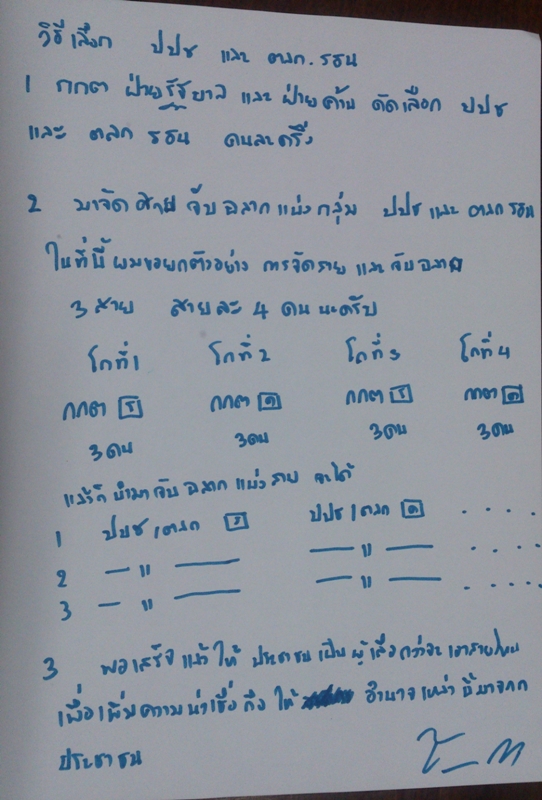 วิธีเลือก ปปช และ ตลก. รธน
1 กกต ฝ่ายรัฐบาล และ ฝ่ายค้าน คัดเลือก ปปช
และ ตลก รธน คนละครึ่ง
2 มาจัดสาย จับฉลากแบ่งกลุ่ม ปปช และ ตลก รธน
ในที่นี้ผมขอยกตัวอย่าง การจัดสาย และจับฉลาก
3 สาย สายละ 4 คน นะครับ
โถที่ 1 โถที่ 2 โถที่ 3 โถที่ 4
กกต ร กกต ค กกต ร กกต ค
3 คน 3 คน 3 คน 3 คน
แล้วก็ นำมาจับ ฉลาก แบ่งสาย จะได้
1 ปปช / ตลก ร ปปช / ตลก ค . . . .
2 — " — — " — . . . .
3 — " — — " — . . . . .
3 พอเสร็จ แล้ว ให้ ประชาชน เป็น ผู้เลือกว่าจะเอาสายไหน
เพื่อเพิ่มความน่าเชื่อถึง ให้ อำนาจเหล่านี้มาจาก
ประชาชน